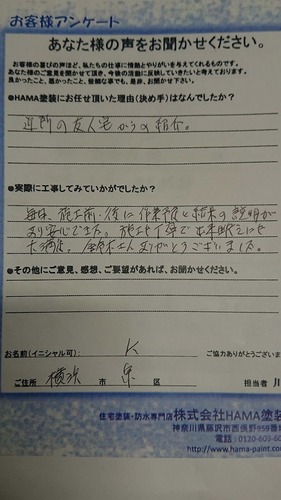 お客様アンケート
あなた様の声をお聞かせください。
お客様の喜びの声ほど、私たちの仕事に情熱とやりがいを与えてくれるものです。
あなた様のご意見を聞かせて頂き、今後の活動に反映していきたいと考えております。
良かったこと、悪かったこと、些細な事でも、是非、お聞かせ下さい。
●HAMA塗装にお任せ頂いた理由(決め手)はなんでしたか?
近所の友人宅からの紹介。
●実際に工事してみていかがでしたか?
毎日、施工前・後に作業予定と結果の説明が
あり安心できた。施工も丁寧で出来映えにも
大満足。 ありがとうございました。
●その他にご意見、感想、ご要望があれば、お聞かせください。
お名前(イニシャル可): K ご協力ありがとうございま
ご住所 横浜 市 泉 区 担当者 川
住宅塗装・防水専門店 株式会社HAMA塗装
神奈川県藤沢市西俣野959番
電話:0120-603-60
http://www.hama-paint.co